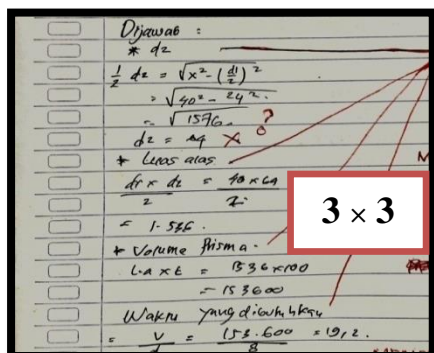 Dijawab :
* d2
1/2 d2 = √x² - (d1/2)²
= √40² - 24²
= √1576
d2 = ?
* Luas alas
d1 x d2 / 2 = 48 x 64 / 2
= 1.536.
3 × 3
* Volume Prisma
L.a x t = 1536 x 100
= 153600
Waktu yang dibutuhkan
= V/d = 153.600/8 = 19,2.